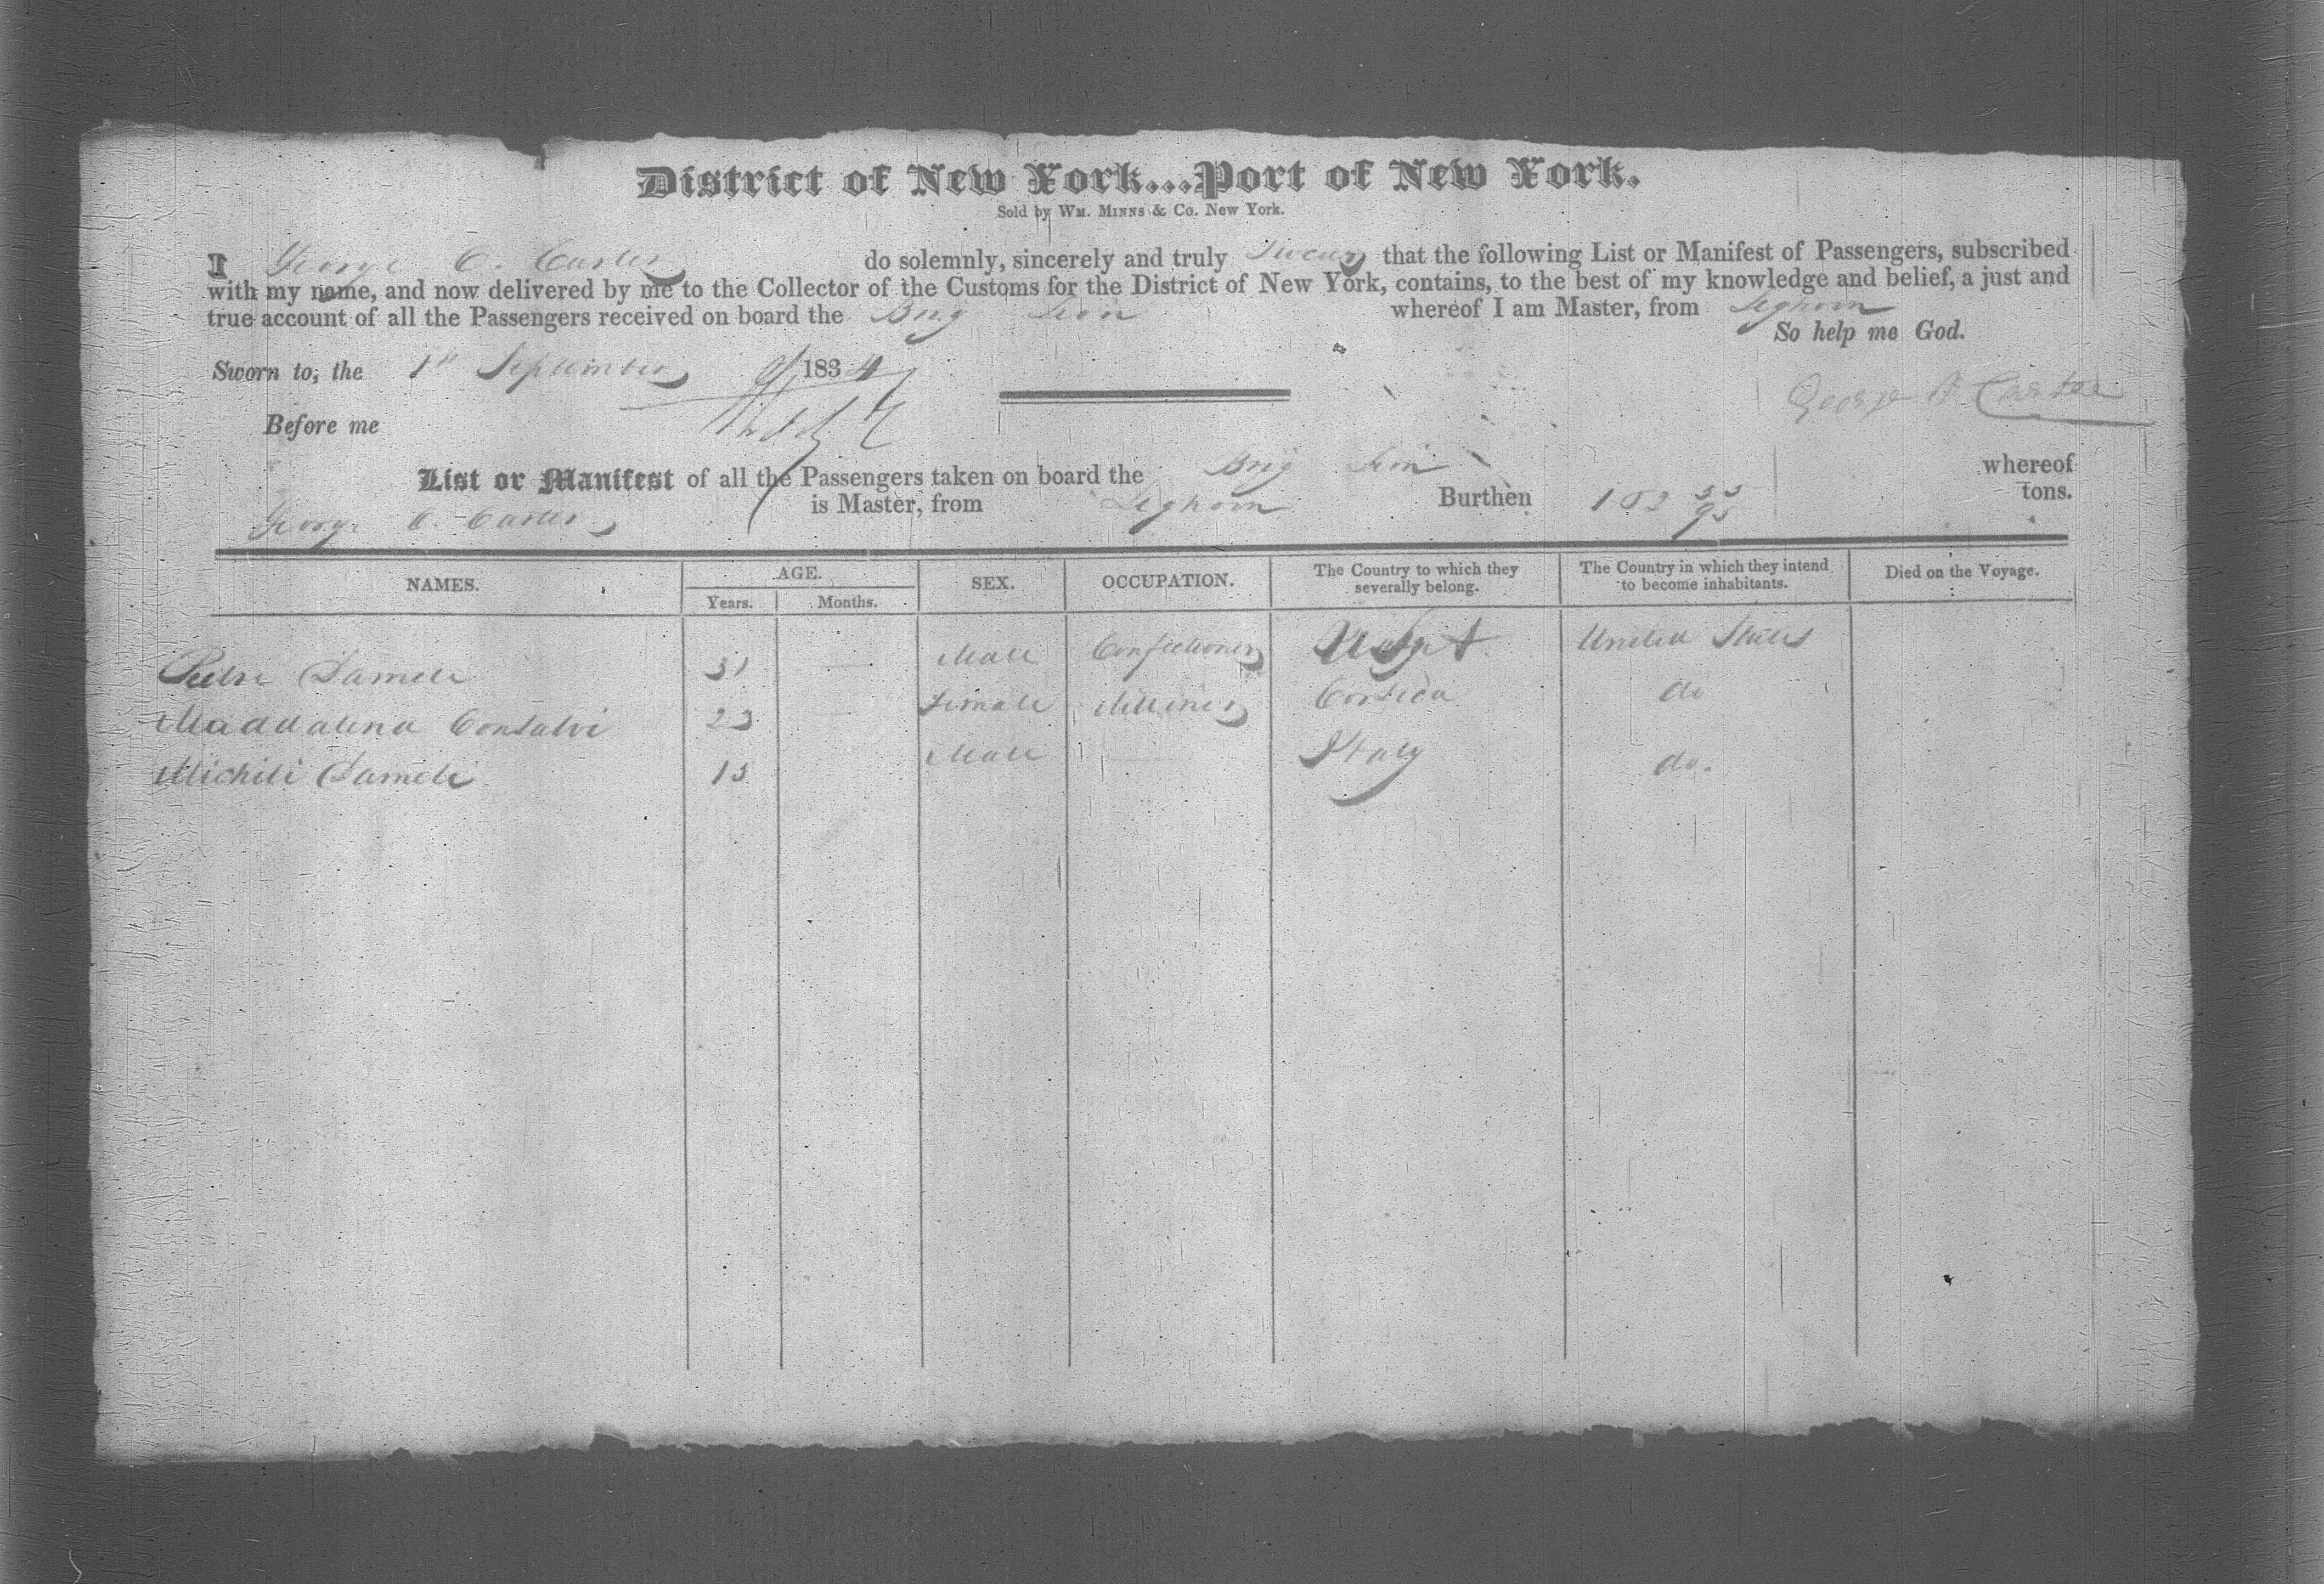 District of New York...Port of New York.
Sold by WM. MINNS & Co. New York.
I George C. Carter do solemnly, sincerely and truly swear that the following List or Manifest of Passengers, subscribed
with my name, and now delivered by me to the Collector of the Customs for the District of New York, contains, to the best of my knowledge and belief, a just and
true account of all the Passengers received on board the Brig Lion whereof I am Master, from Leghorn
So help me God.
Sworn to, the 1st September 1834
George C Carter
Before me
List or Manifest of all the Passengers taken on board the Brig Lion whereof
George C. Carter is Master, from Leghorn Burthen 182 tons.
NAMES. AGE. SEX. OCCUPATION. The Country to which they severally belong. The Country in which they intend to become inhabitants. Died on the Voyage.
Years. Months.
Pietro 31 Male Confectioner United States
Maddalena Consalvi 23 Female Milliner Corsica do
Michele 13 Male Italy do.